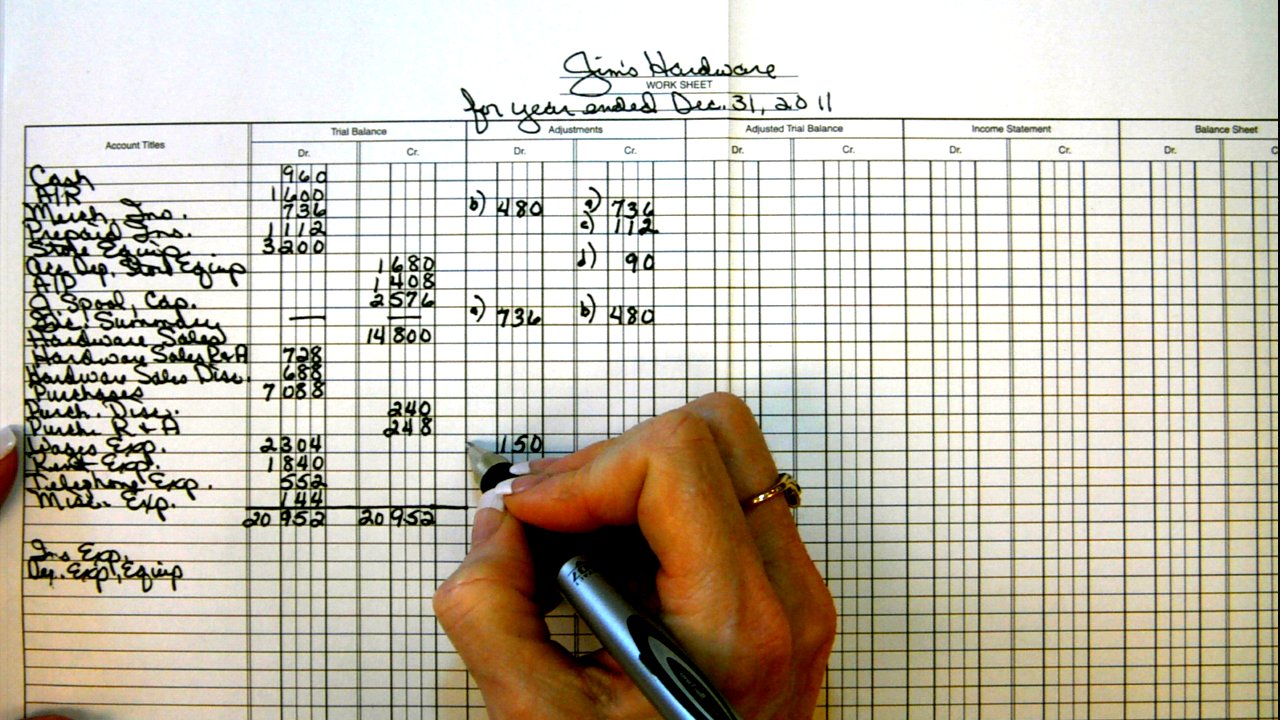 Jim's Hardware
WORK SHEET
for year ended Dec. 31, 2011
Account Titles Trial Balance Adjustments Adjusted Trial Balance Income Statement Balance Sheet
Dr. Cr. Dr. Cr. Dr. Cr. Dr. Cr. Dr. C
Cash 960
A/R 1600
Merch. Inv. 736 b) 480 a) 736
Prepaid Ins. 1112 c) 112
Store Equip. 3200
Acc. Dep., Store Equip 1680 d) 90
A/P 1408
J. Spool, Cap. 2576
Inc. Summary — — a) 736 b) 480
Hardware Sales 14800
Hardware Sales R+A 728
Hardware Sales Disc. 688
Purchases 7088
Purch. Disc. 240
Purch. R+A 248
Wages Exp. 2304 150
Rent Exp. 1840
Telephone Exp. 552
Misc. Exp. 144
20952 20952
Ins Exp.
Dep. Exp., Equip